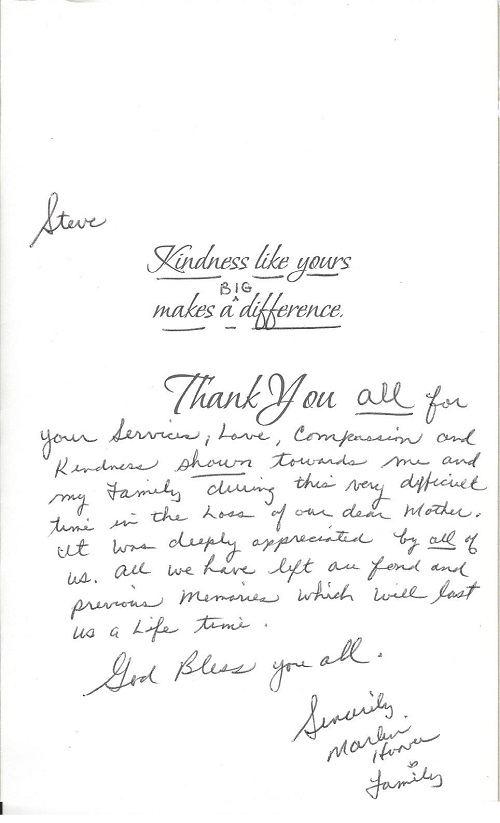 Steve
Kindness like yours
BIG
makes a ^ difference.
Thank You all for
your Services, Love, Compassion and
Kindness shown towards me and
my Family during this very difficult
time in the Loss of our dear Mother.
It was deeply appreciated by all of
us. All we have left are fond and
previous Memories which will last
us a Life time.
God Bless you all.
Sincerily
Family